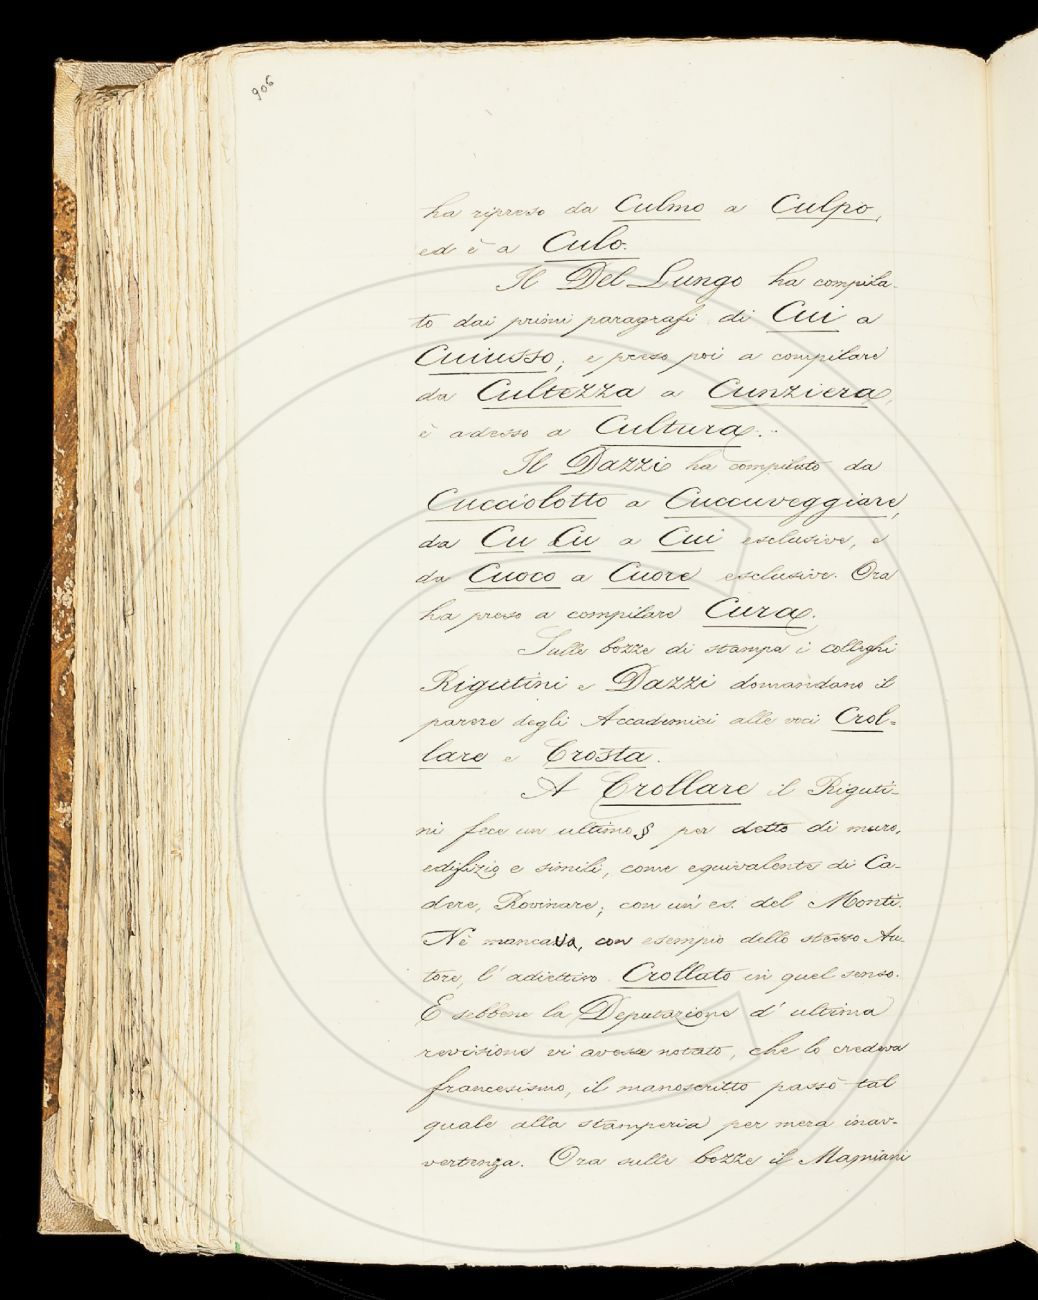 906
ha ripreso da Culmo a Culpo,
ed è a Culo.
Il Del Lungo ha compila-
to dai primi paragrafi di Cui a
Cuiusso; e preso poi a compilare
da Cultezza a Cunziera,
è adesso a Cultura.
Il Dazzi ha compilato da
Cucciolotto a Cuccuveggiare,
da Cu Cu a Cui esclusive, e
da Cuoco a Cuore esclusive. Ora
ha preso a compilare Cura.
Sulle bozze di stampa i colleghi
Rigutini e Dazzi domandano il
parere degli Accademici alle voci Crol-
lare e Crosta.
A Crollare il Riguti-
ni fece un ultimo § per detto di muro,
edifizio e simili, come equivalente di Ca-
dere, Rovinare; con un' es. del Monti.
Nè mancava, con esempio dello stesso Au-
tore, l' adiettivo Crollato in quel senso.
E sebbene la Deputazione d' ultima
revisione vi avesse notato, che lo credeva
francesismo, il manoscritto passò tal
quale alla stamperia per mera inav-
vertenza. Ora sulle bozze il Mamiani